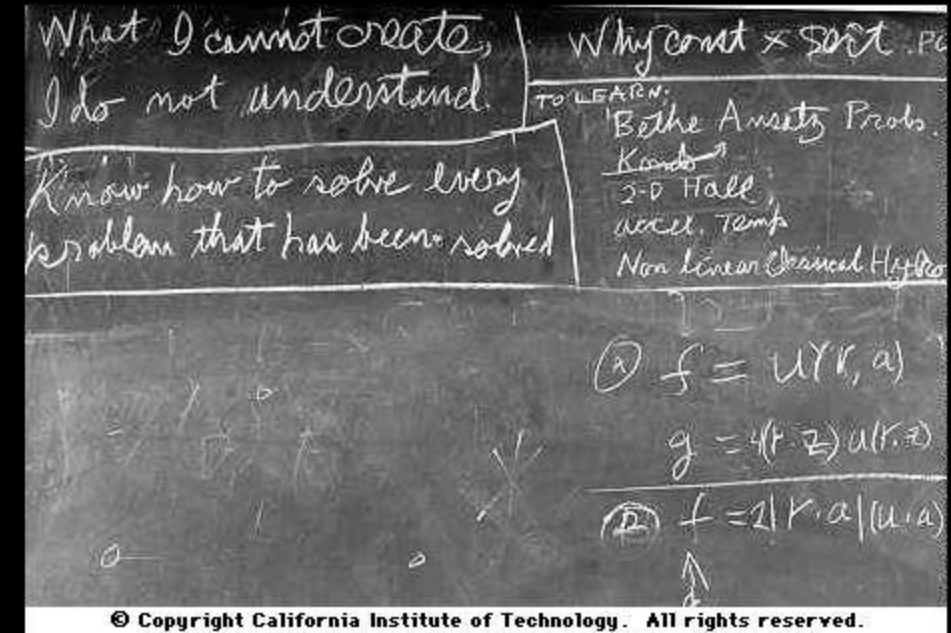 What I cannot create,
I do not understand.
Know how to solve every
problem that has been solved
Why const × sort . Po
TO LEARN:
Bethe Ansatz Probs.
Kondo
2-D Hall
accel. Temp
Non Linear Classical Hydro
f = U(r, a)
g = 4(r·z) u(r·z)
f = 2|r·a|(u·a)
© Copyright California Institute of Technology. All rights reserved.